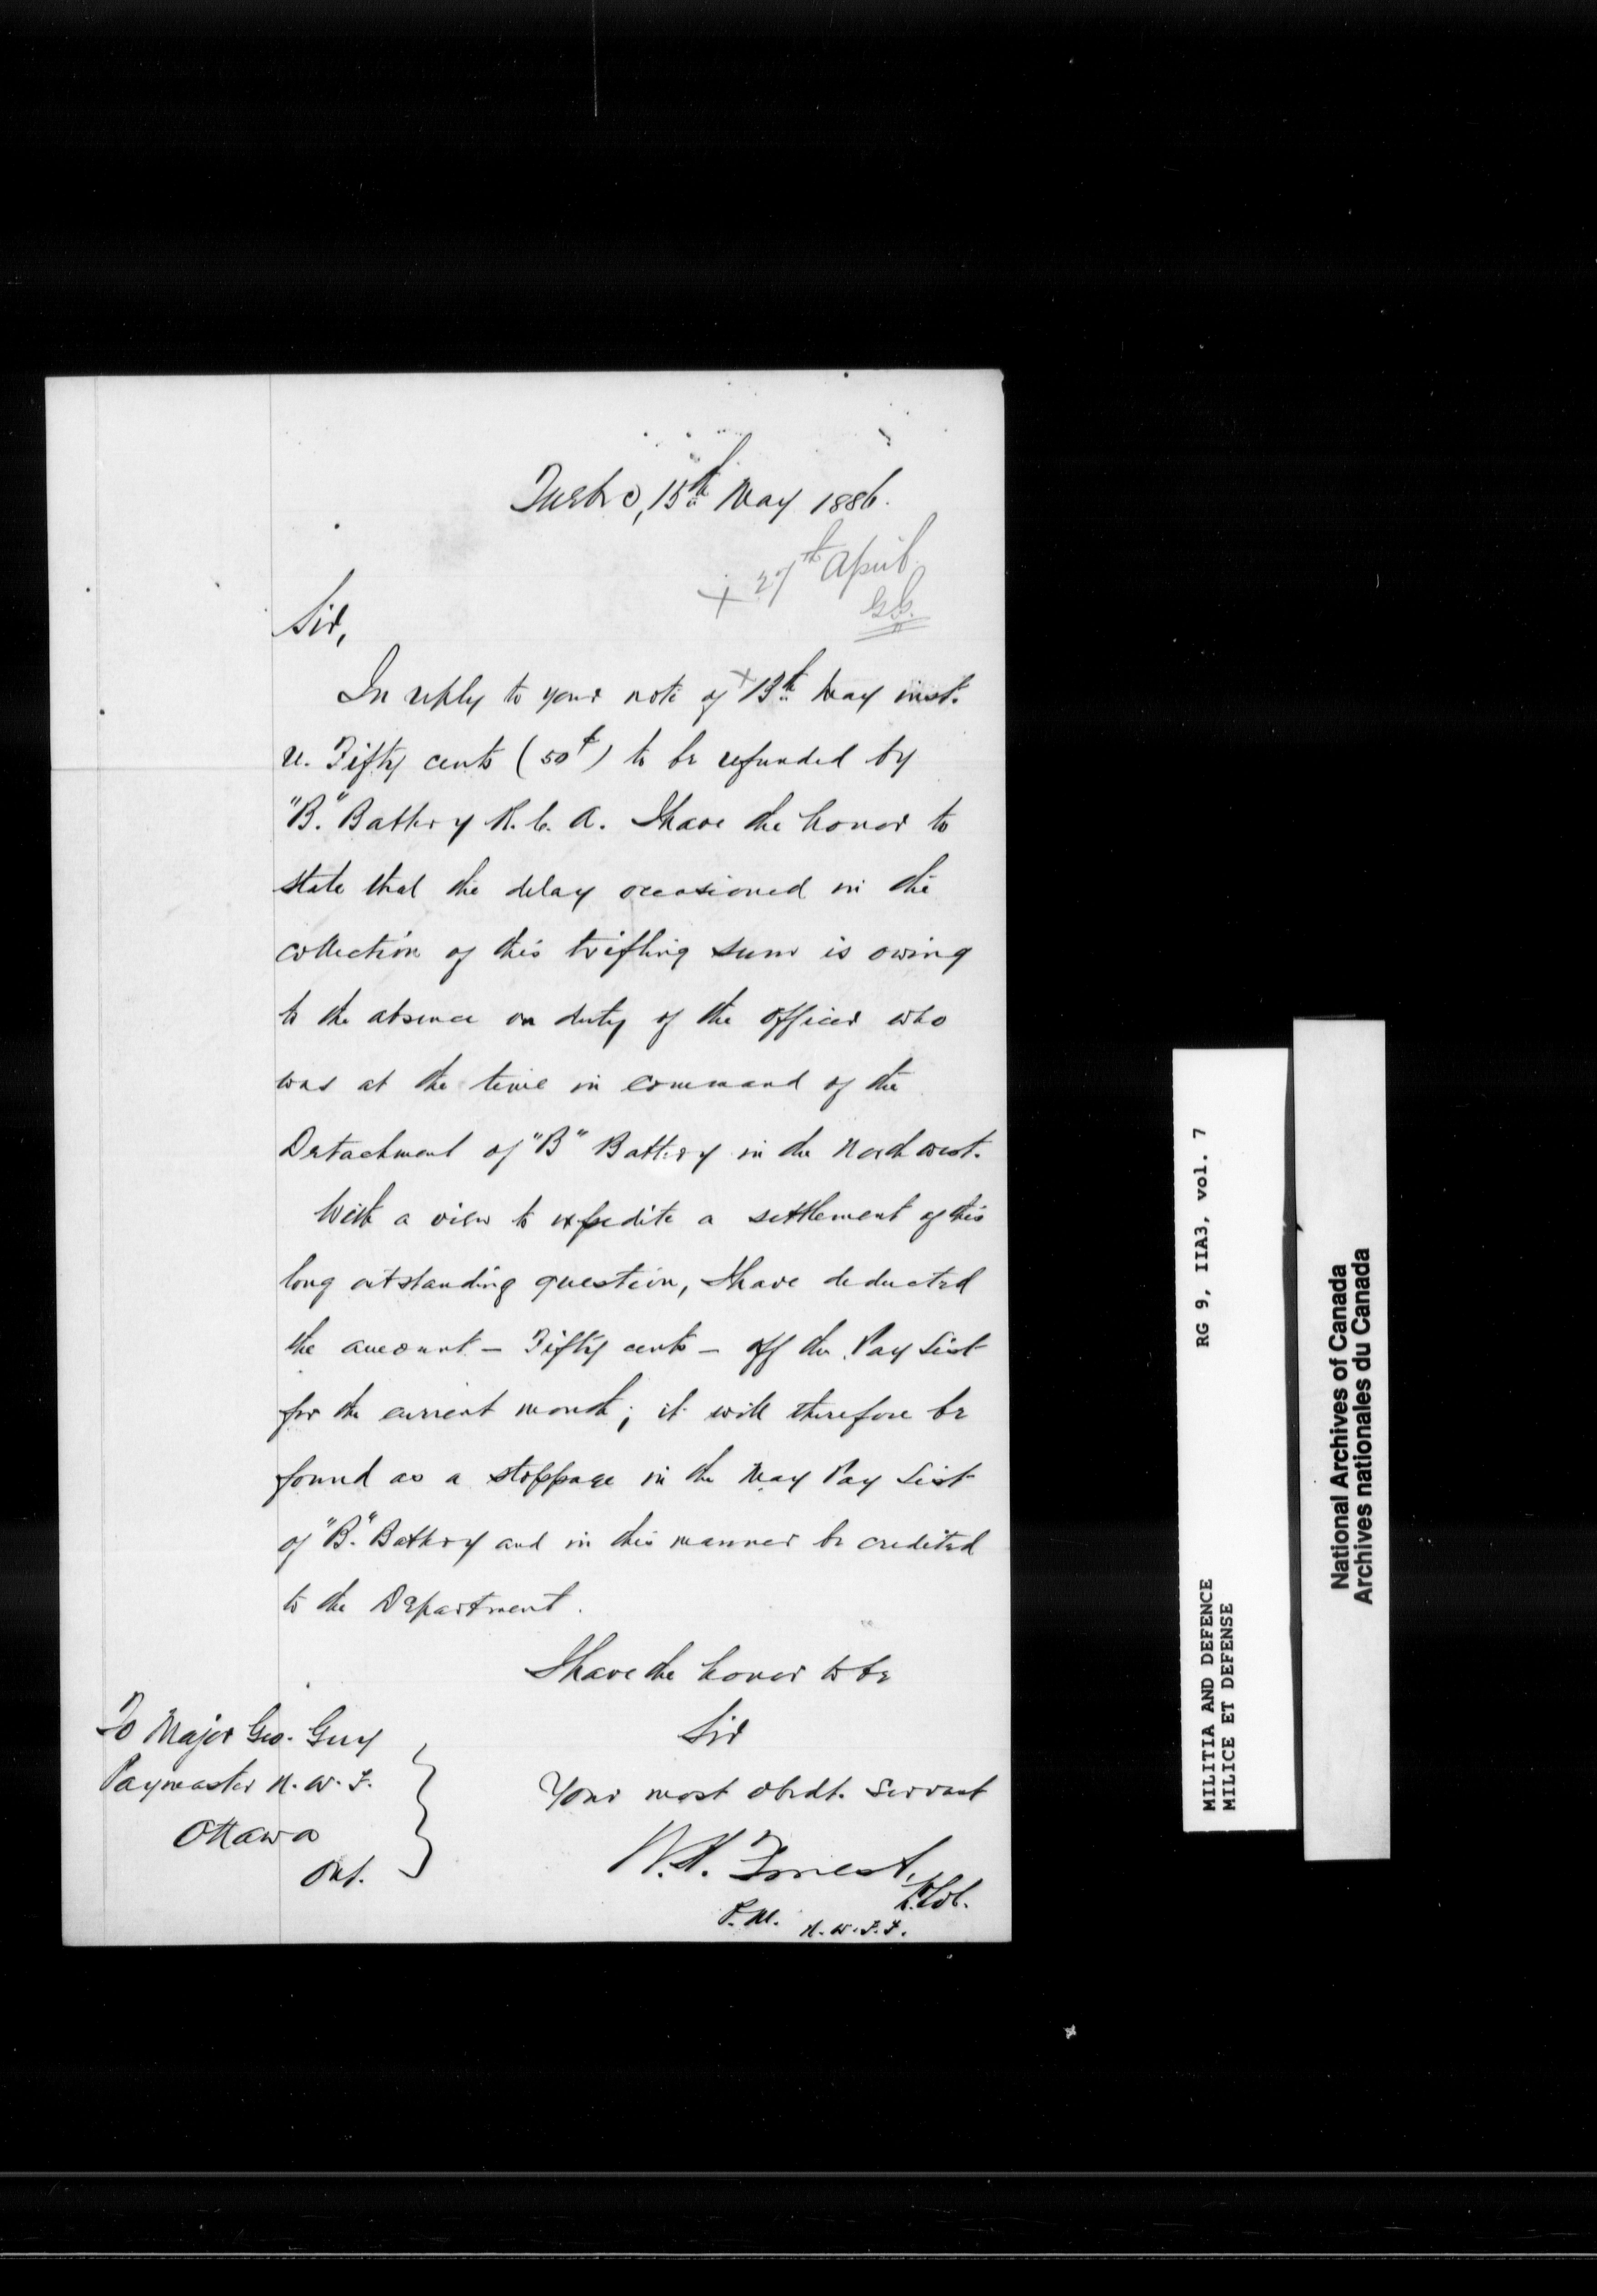 Quebec, 15th May 1886.
+ 27th April
GG.
Sir,
In reply to your note of + 13th May inst.
re. Fifty cents (50¢) to be refunded by
"B." Battery R. C. A. I have the honor to
state that the delay occasioned in the
collection of this trifling sum is owing
to the absence on duty of the officer who
was at the time in command of the
Detachment of "B" Battery in the North west.
With a view to expedite a settlement of this
long outstanding question, I have deducted
the amount – Fifty cents – off the Pay List
for the current month; it will therefore be
found as a stoppage in the May Pay List
of "B." Battery and in this manner be credited
to the Department.
I have the honor to be
Sir
Your most obedt. Servant
W.H. Forrest,
Lt. Col.
P.M. N.W.F.F.
To Major Geo. Guy
Paymaster N.W.F.
Ottawa
Ont.
MILITIA AND DEFENCE RG 9, IIA3, vol. 7
MILICE ET DEFENSE
National Archives of Canada
Archives nationales du Canada